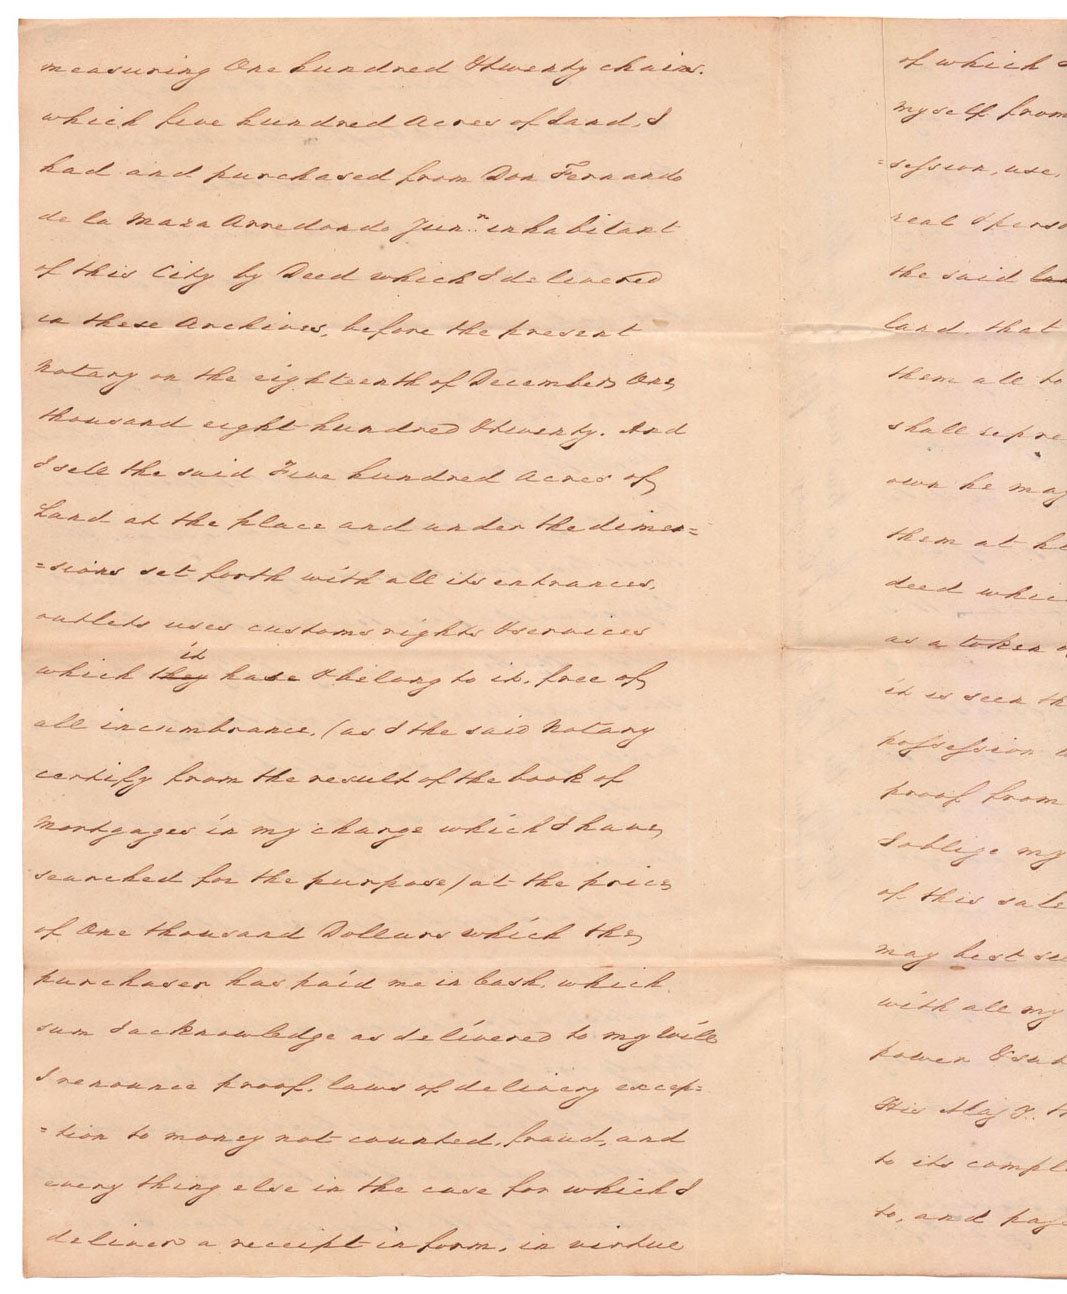 measuring One hundred & twenty chains.
which five hundred Acres of Land, I
had and purchased from Don Fernando
de la Maza Arredondo Jun.r inhabitant
of this City by Deed which I delivered
in these Archives, before the present
Notary on the eighteenth of December One
thousand eight hundred & twenty. And
I sell the said Five hundred Acres of
Land at the place and under the dimen=
=sions set forth with all its entrances,
outlets uses customs rights & services
it
which they have & belong to it, free of
all incumbrance, (as I the said Notary
certify from the result of the book of
Mortgages in my charge which I have
searched for the purpose) at the price
of One thousand Dollars which the
purchaser has paid me in Cash, which
sum I acknowledge as delivered to my Will
I renounce proof, laws of delivery excep=
=tion to money not counted, fraud, and
every thing else in the case for which I
deliver a receipt in form, in virtue
of which I
myself from
=session, use,
real & perso
the said
land, that
them all to
shall repre
own he may
them at hi
deed whic
as a token o
it is seen th
possession
proof from
I oblige my
of this sale
may best su
with all my
power & sub
His Maj.y
to its compl
to, and pas